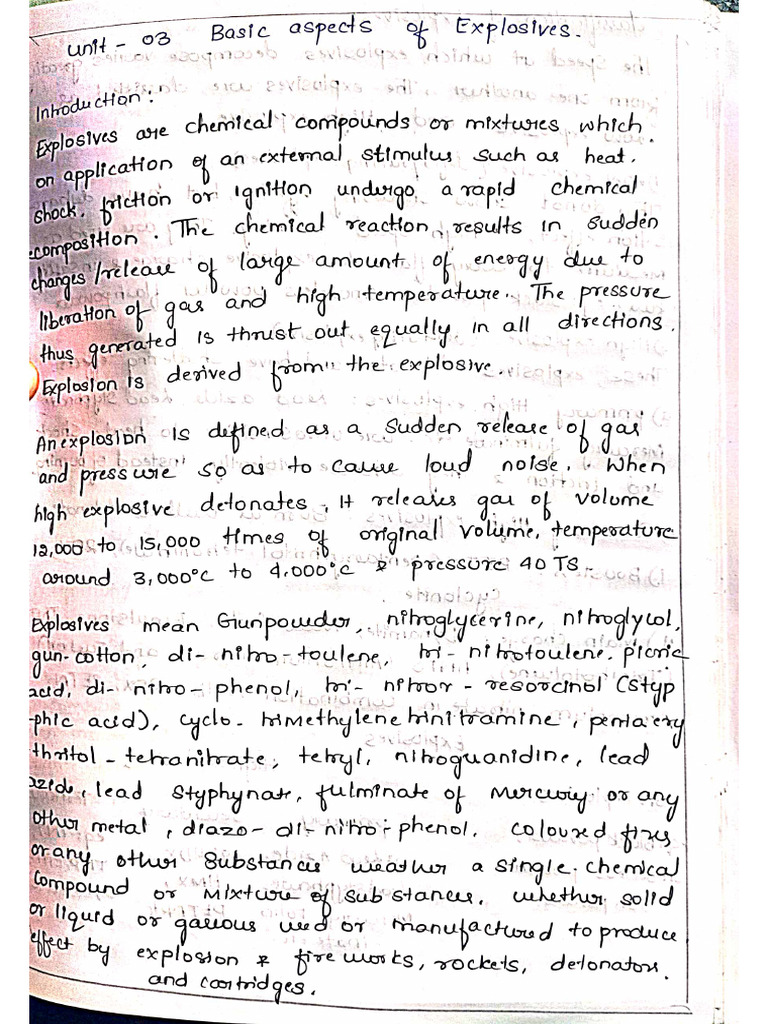 Unit - 03 Basic aspects of Explosives.
Introduction:
Explosives are chemical compounds or mixtures which.
on application of an external stimulus such as heat.
shock, friction or ignition undergo a rapid chemical
ecomposition. The chemical reaction results in sudden
changes/release of large amount of energy due to
liberation of gas and high temperature. The pressure
thus generated is thrust out equally in all directions.
Explosion is derived from the explosive.
An explosion is defined as a sudden release of gas
and pressure so as to cause loud noise. When
high explosive detonates, it releases gas of volume
12,000 to 15,000 times of original volume, temperature
around 3,000°C to 4,000°C & pressure 40 TS.
Explosives mean Gunpowder, nitroglycerine, nitroglycol,
gun-cotton, di-nitro-toulene, tri-nitrotoulene, picric
acid, di-nitro-phenol, tri-nitror-resorcinol (styp
-phic acid), cyclo-trimethylenetrinitramine, penta ery
thritol-tetranitrate, tetryl, nitroguanidine, lead
azide, lead styphynate, fulminate of Mercury or any
other metal, diazo-di-nitro-phenol, coloured fires
or any other substances weather a single chemical
compound or mixture of substances, whether solid
or liquid or gaseous used or manufactured to produce
effect by explosion & fire works, rockets, detonators.
and cartridges.